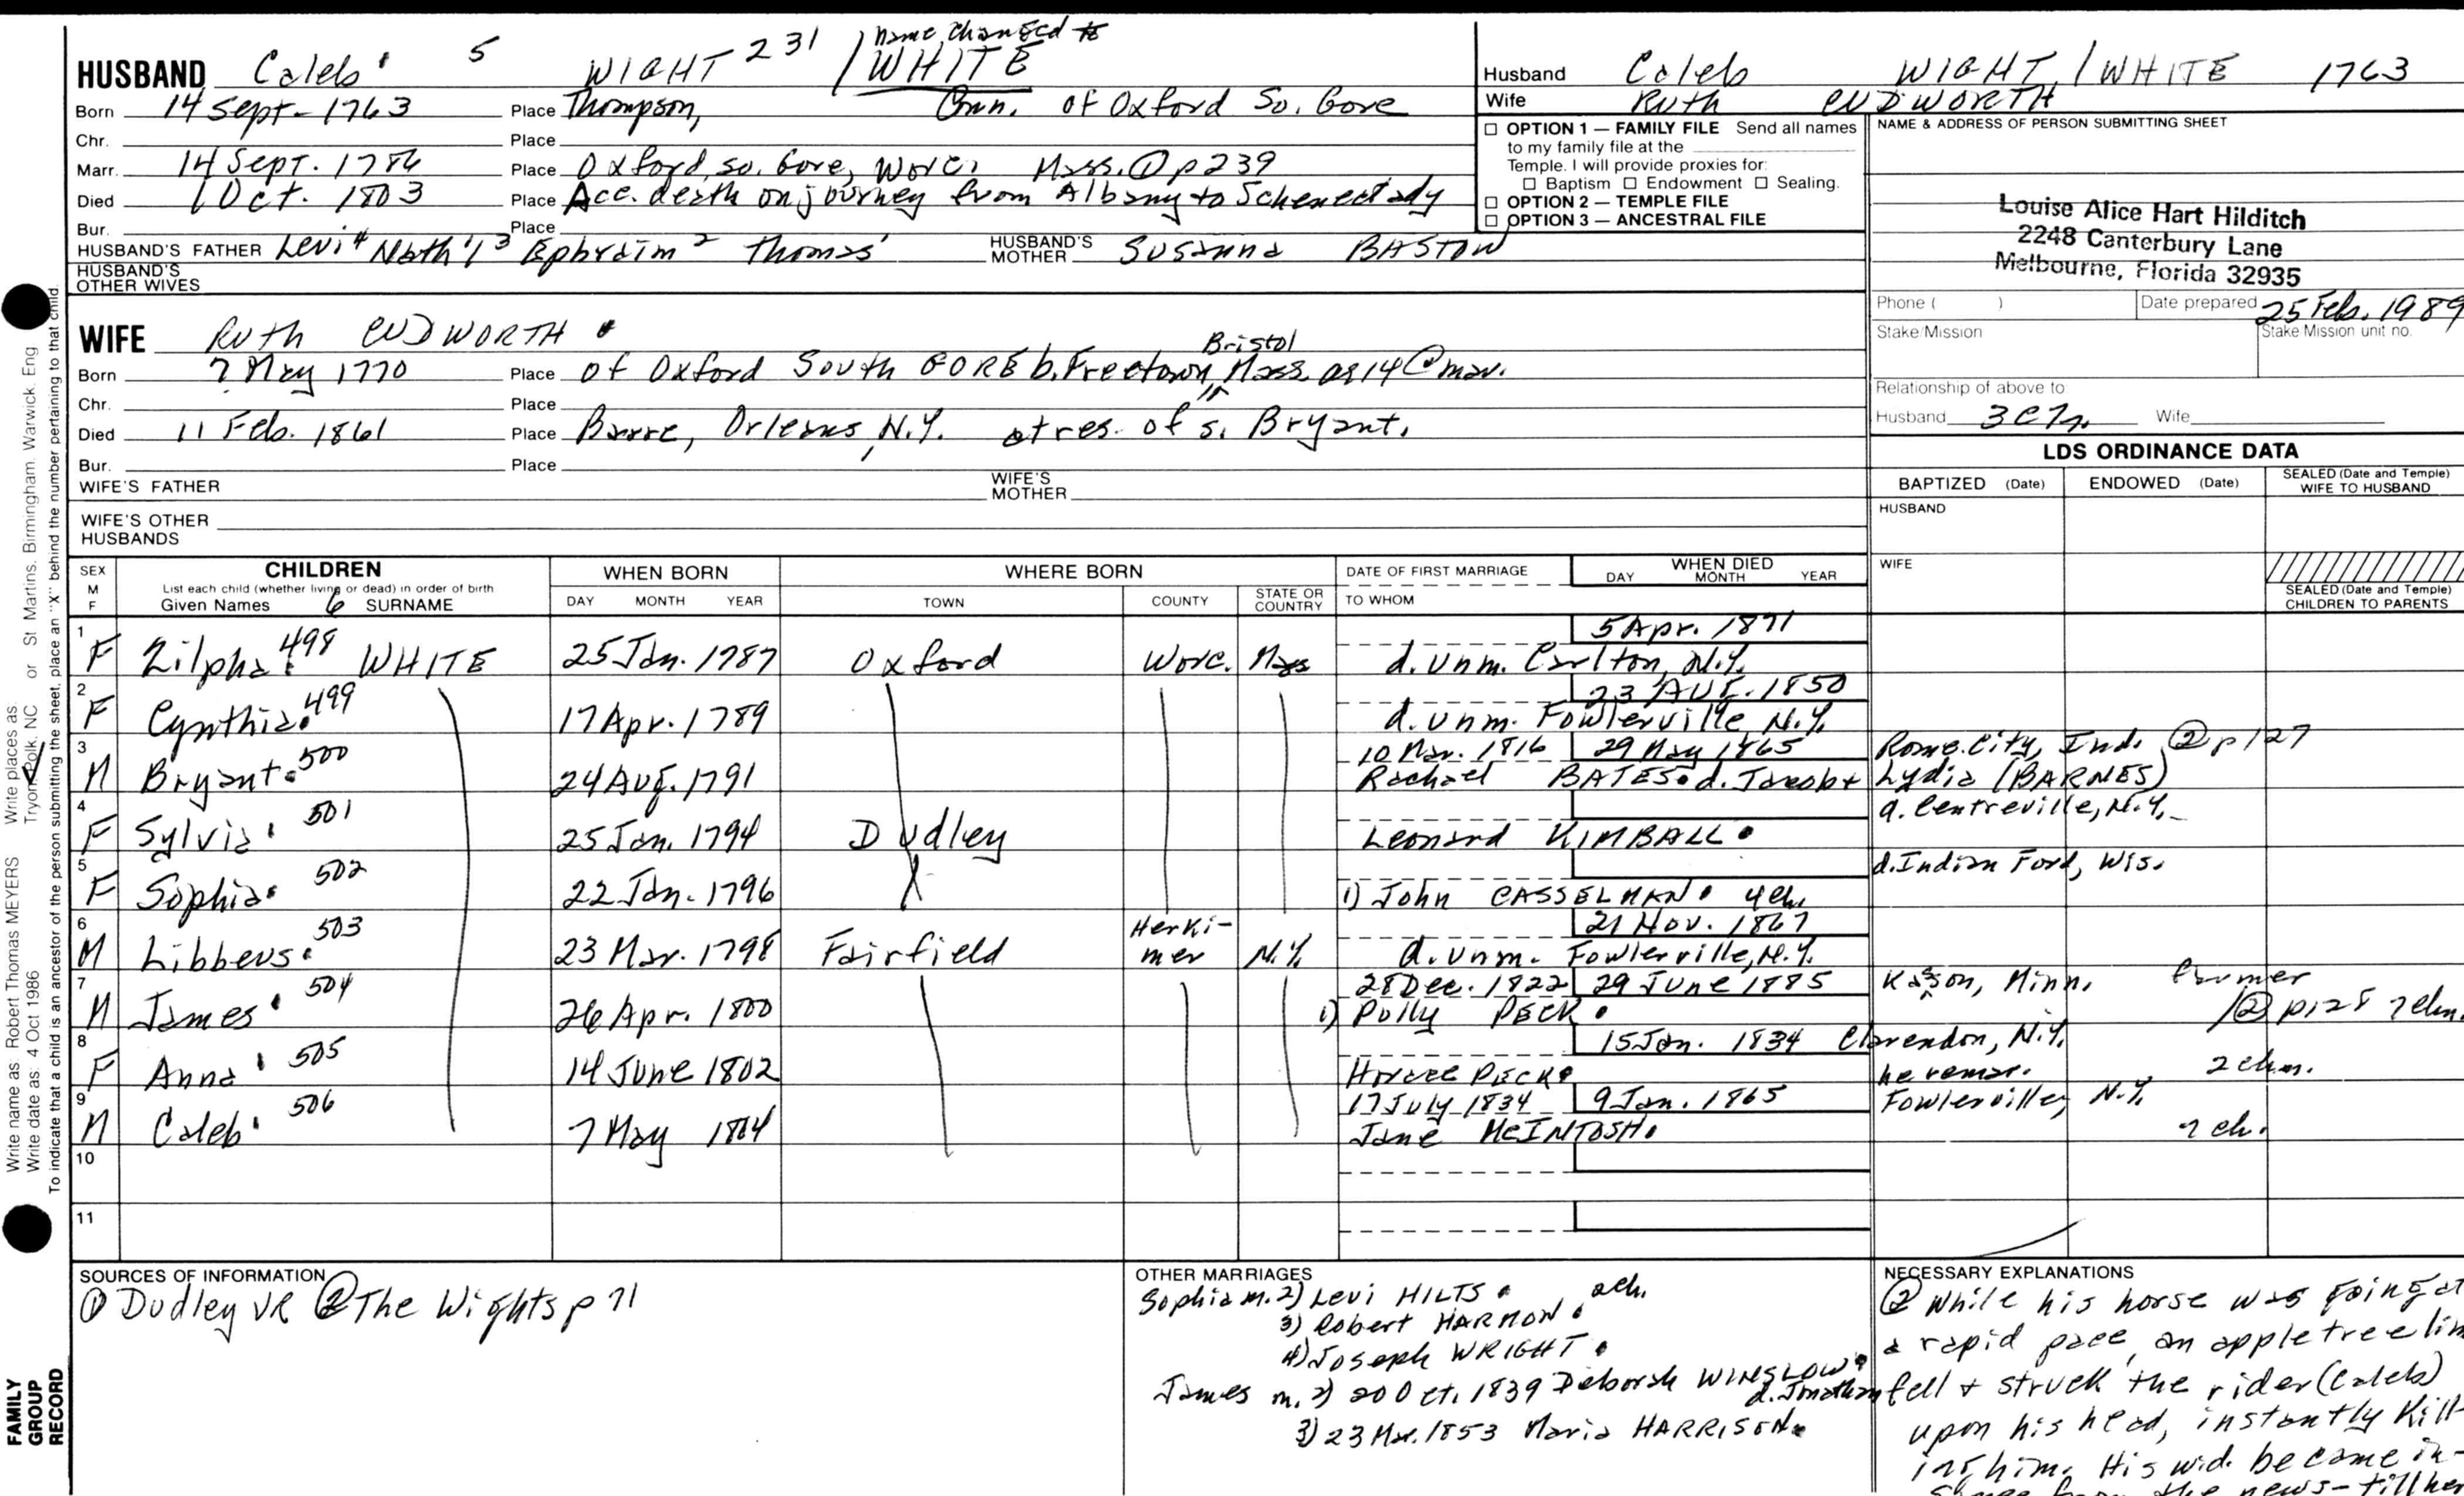 HUSBAND Caleb 5 WIGHT 231 / WHITE name changed to
Born 14 Sept - 1763 Place Thompson, Conn. of Oxford So. Gore
Chr. Place
Marr. 14 Sept. 1786 Place Oxford, So. Gore, Worc. Mass. ② p239
Died 1 Oct. 1803 Place Acc. death on journey from Albany to Schenectady
Bur. Place
HUSBAND'S FATHER Levi 4 Nath'l 3 Ephraim 2 Thomas 1 HUSBAND'S MOTHER Susanna BASTOW
HUSBAND'S OTHER WIVES
Husband Caleb WIGHT / WHITE 1763
Wife Ruth CUDWORTH
□ OPTION 1 — FAMILY FILE Send all names
to my family file at the
Temple. I will provide proxies for:
□ Baptism □ Endowment □ Sealing.
□ OPTION 2 — TEMPLE FILE
□ OPTION 3 — ANCESTRAL FILE
NAME & ADDRESS OF PERSON SUBMITTING SHEET
Louise Alice Hart Hilditch
2248 Canterbury Lane
Melbourne, Florida 32935
Phone ( ) Date prepared 25 Feb. 1989
Stake/Mission Stake Mission unit no.
Relationship of above to
Husband Wife
WIFE Ruth CUDWORTH
Born 7 May 1770 Place of Oxford South GORE b. Freetown, Bristol Mass. @ mar.
Chr. Place
Died 11 Feb. 1861 Place Barre, Orleans, N.Y. at res. of s. Bryant.
Bur. Place
WIFE'S FATHER WIFE'S MOTHER
WIFE'S OTHER HUSBANDS
LDS ORDINANCE DATA
BAPTIZED (Date) ENDOWED (Date) SEALED (Date and Temple) WIFE TO HUSBAND
HUSBAND
WIFE
SEALED (Date and Temple) CHILDREN TO PARENTS
SEX M F
CHILDREN
List each child (whether living or dead) in order of birth
Given Names 6 SURNAME
WHEN BORN DAY MONTH YEAR
WHERE BORN TOWN COUNTY STATE OR COUNTRY
DATE OF FIRST MARRIAGE
TO WHOM
WHEN DIED DAY MONTH YEAR
1 5 Apr. 1871
F Zilpha 498 WHITE 25 Jan. 1787 Oxford Worc. Mass d. unm. Carlton, N.Y.
2 23 AUG. 1850
F Cynthia 499 17 Apr. 1789 d. unm. Fowlerville, N.Y.
3 10 Mar. 1816 29 May 1865 Rome City, Ind. ② p127
M Bryant 500 24 Aug. 1791 Rachael BATES d. Jacob + Lydia (BARNES)
4 d. Centreville, N.Y.
F Sylvia 501 25 Jan. 1794 Dudley Leonard KIMBALL
5 d. Indian Ford, Wis.
F Sophia 502 22 Jan. 1796 1) John CASSELMAN 4 ch.
6 21 Nov. 1867
M Libbeus 503 23 Mar. 1798 Fairfield Herkimer N.Y. d. unm. Fowlerville, N.Y.
7 28 Dec. 1822 29 June 1885 Kasson, Minn. farmer
M James 504 26 Apr. 1800 1) Polly PECK ② p128 7 chn.
8 15 Jan. 1834 Clarendon, N.Y.
F Anna 505 14 June 1802 Horace PECK he remar. 2 chn.
9 17 July 1834 9 Jan. 1865 Fowlerville, N.Y.
M Caleb 506 7 May 1804 Jane McINTOSH 7 ch.
10
11
SOURCES OF INFORMATION
① Dudley VR ② The Wights p 71
OTHER MARRIAGES
Sophia m. 2) Levi HILTS 2 ch.
3) Robert HARMON
4) Joseph WRIGHT
James m. 2) 20 Oct. 1839 Deborah WINSLOW d. Jonathan
3) 23 Mar. 1853 Maria HARRISON
NECESSARY EXPLANATIONS
② While his horse was going at
a rapid pace, an apple tree lim
fell + struck the rider (Caleb)
upon his head, instantly kill-
ing him. His wid. became in-
sane from the news - till her
Write name as: Robert Thomas MEYERS Write places as:
Write date as: 4 Oct 1986 Tryon, Polk, NC or St Martins, Birmingham, Warwick, Eng
To indicate that a child is an ancestor of the person submitting the sheet, place an "X" behind the number pertaining to that child.
FAMILY
GROUP
RECORD